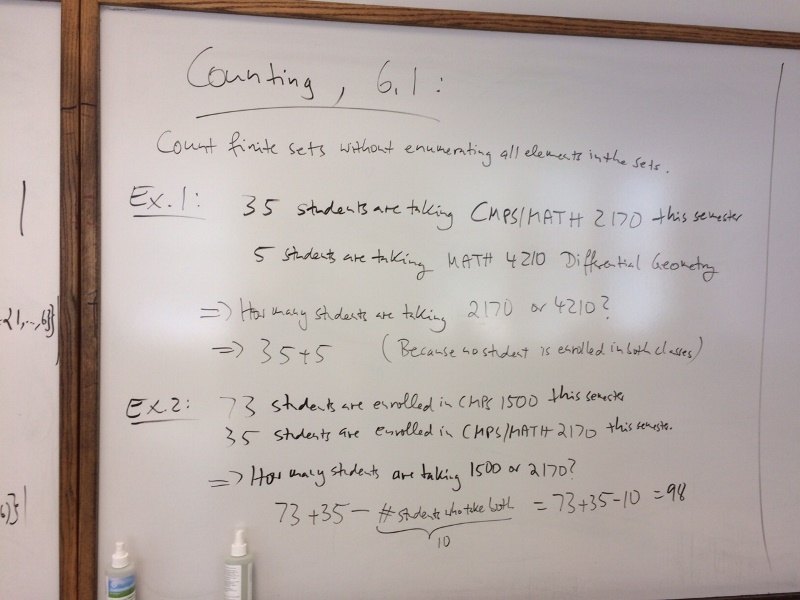 Counting, 6.1:
Count finite sets without enumerating all elements in the sets.
Ex.1: 35 students are taking CMPS/MATH 2170 this semester
5 students are taking MATH 4210 Differential Geometry
=> How many students are taking 2170 or 4210?
=> 35+5 (Because no student is enrolled in both classes)
Ex.2: 73 students are enrolled in CMPS 1500 this semester
35 students are enrolled in CMPS/MATH 2170 this semester.
=> How many students are taking 1500 or 2170?
73+35 - #students who take both = 73+35-10 = 98
10
21,...,6}}